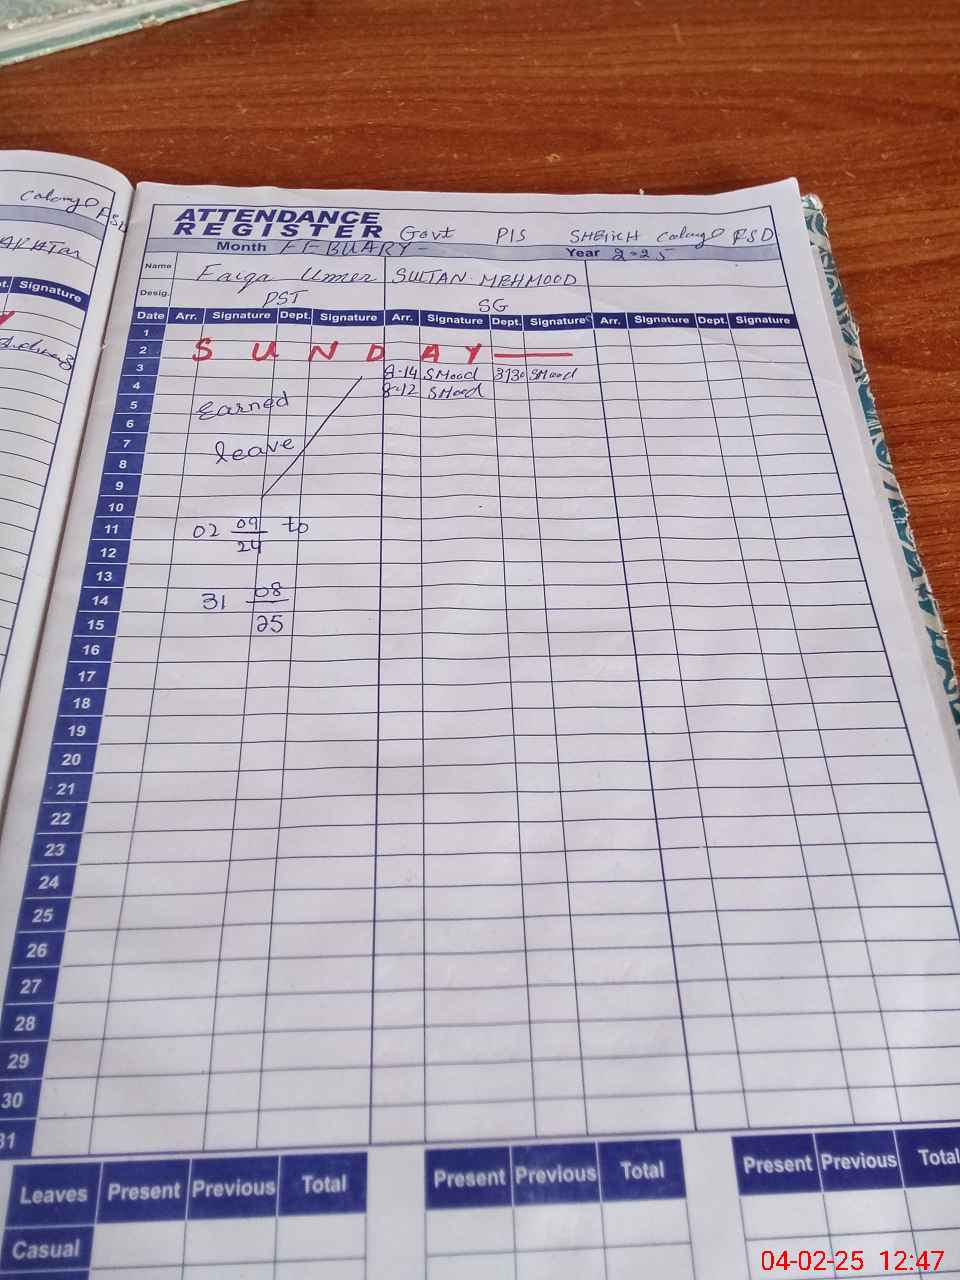 Colony FSD
AKHTAR
t. Signature
ATTENDANCE
REGISTER Govt P/S SHEIKH Colony FSD
Month FEBUARY - Year 2025
Name Faiqa Umer SULTAN MEHMOOD
Desig. PST SG
Date Arr. Signature Dept. Signature Arr. Signature Dept. Signature Arr. Signature Dept. Signature
1
2 SUNDAY
3 8-14 SMood 3130 SMood
4 8-12 SMood
5 Earned
6
7 leave
8
9
10
11 02 09/24 to
12
13
14 31 08/25
15
16
17
18
19
20
21
22
23
24
25
26
27
28
29
30
31
Leaves Present Previous Total Present Previous Total Present Previous Total
Casual
04-02-25 12:47